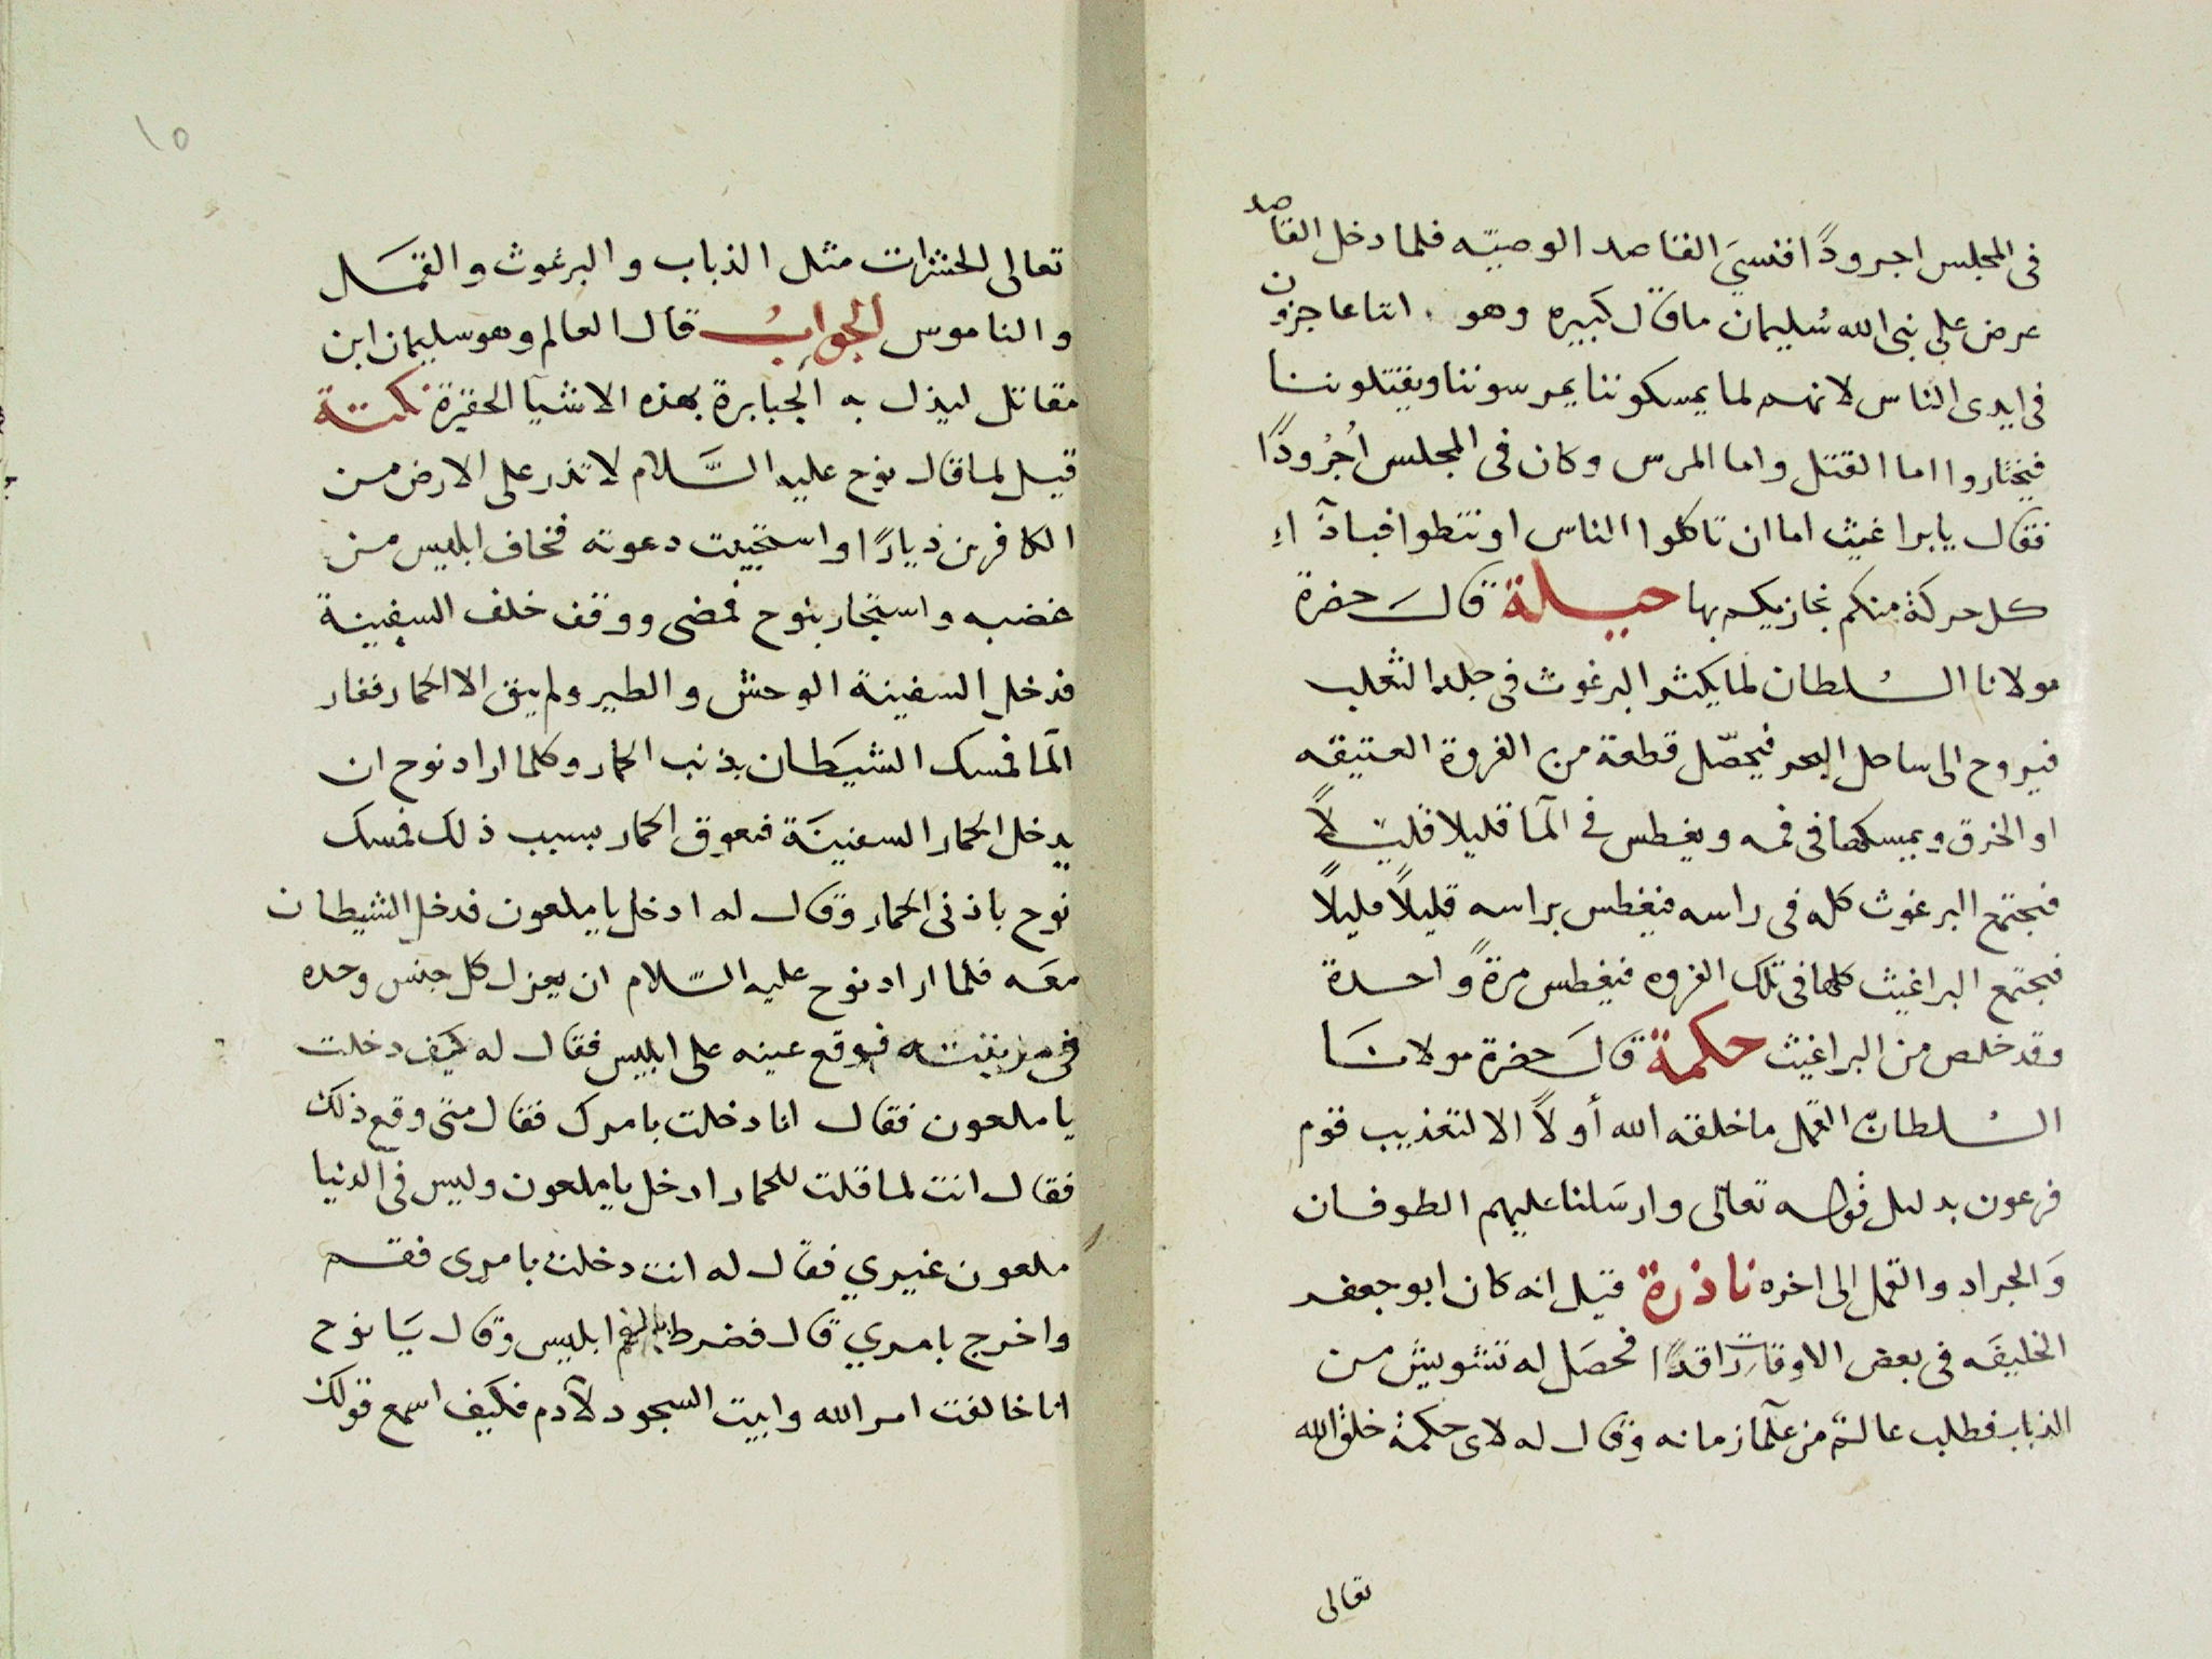 فى المجلس اجرودًا فنسيَ القاصد الوصيّه فلما دخل القاصد
عرض على نبى الله سُليمان ما قال كبيره وهو اننا عاجزون
فى ايدى الناس لانهم لما يمسكوننا يمرسوننا ويقتلوننا
فيختاروا اما القتل واما المرس وكان فى المجلس اُجْرُودًا
فقال يا براغيث اما ان تاكلوا الناس او تنطوا فباذآء
كل حركة منكم نجازيكم بها حيلة قال حضرة
مولانا السُلطان لما يكثر البرغوث فى جلد الثعلب
فيروح الى ساحل البحر فيحصّل قطعة من الفروة العتيقه
او الخرق ويمسكها فى فمه ويغطس فى المآ قليلا قليلاً
فيجتمع البرغوث كله فى راسه فيغطس براسه قليلاً مليلاً
فيجتمع البراغيث كلها فى تلك الفروه فيغطس مرةً واحدة
وقد خلص من البراغيث حكمة قال حضرة مولانا
السُلطان القمل ما خلقه الله أولاً الا لتعذيب قوم
فرعون بدليل قوله تعالى وارسَلنا عليهم الطوفان
وَالجراد والقمل الى اخره ناذرة قيل انه كان ابو جعفر
الخليفَه فى بعض الاوقات راقدًا فحصَل له تشويش من
الذباب فطلب عالم من علمآ زمانه وقال له لاى حكمة خلق الله
تعالى
١٥
تعالى الحشرات مثل الذباب والبرغوث والقمَل
والناموس الجوابُ قال العالم وهو سليمان ابن
مقاتل ليذل به الجبابرة بهذه الاشيا الحقيرة نكتة
قيل لما قال نوح عليه السَّلام لا تذر على الارض من
الكافرين ديارًا واستجيبت دعوته فخاف ابليس من
غضبه واستجار بنوح فمضى ووقف خلف السفينة
فدخل السفينة الوحش والطير ولم يبق الا الحمار ففار
المآ فمسك الشيطان بذنب الحمار وكلما اراد نوح ان
يدخل الحمار السفينَة فتعوق الحمار بسبب ذلك فمسك
نوح باذنى الحمار وقال له ادخل يا ملعون فدخل الشيطان
معَه فلما اراد نوح عليه السّلام ان يعزل كل جنس وحده
فى مرتبته فوقع عينه على ابليس فقال له كيف دخلت
يا ملعون فقال انا دخلت بامرك فقال متى وقع ذلك
فقال انت لما قلت للحمار ادخل يا ملعون وليس فى الدنيا
ملعون غيري فقال له انت دخلت بامرى فقم
واخرج بامري قال فضرط ابليس وقال يَا نوح
انا خالفت امر الله وابيت السجود لآدم فكيف اسمع قولك